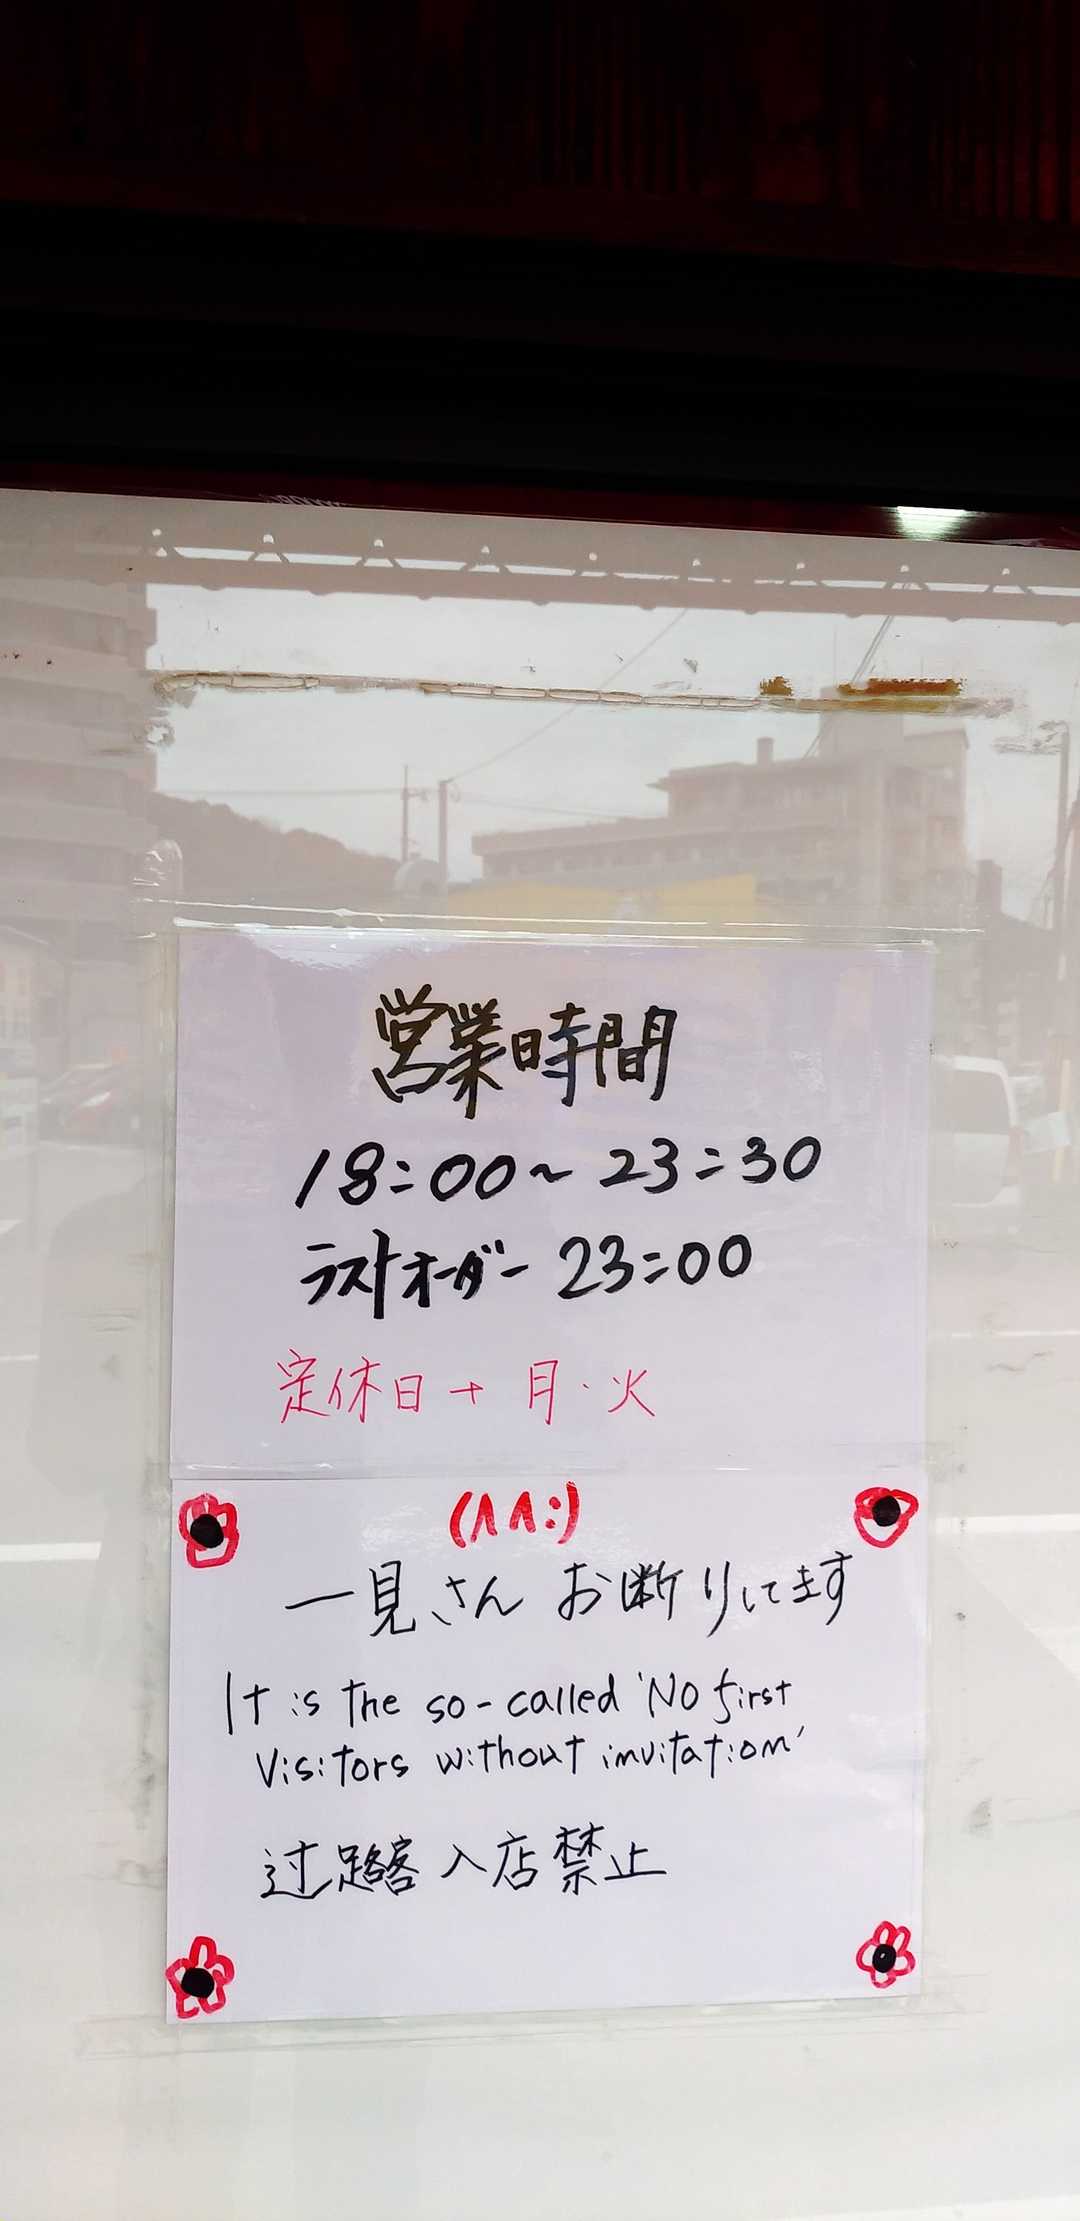 営業時間
18:00~23:30
ラストオーダー 23:00
定休日→月・火
(^^:)
一見さん お断りしてます
It is the so-called 'No first
visitors without invitation'
过路客入店禁止